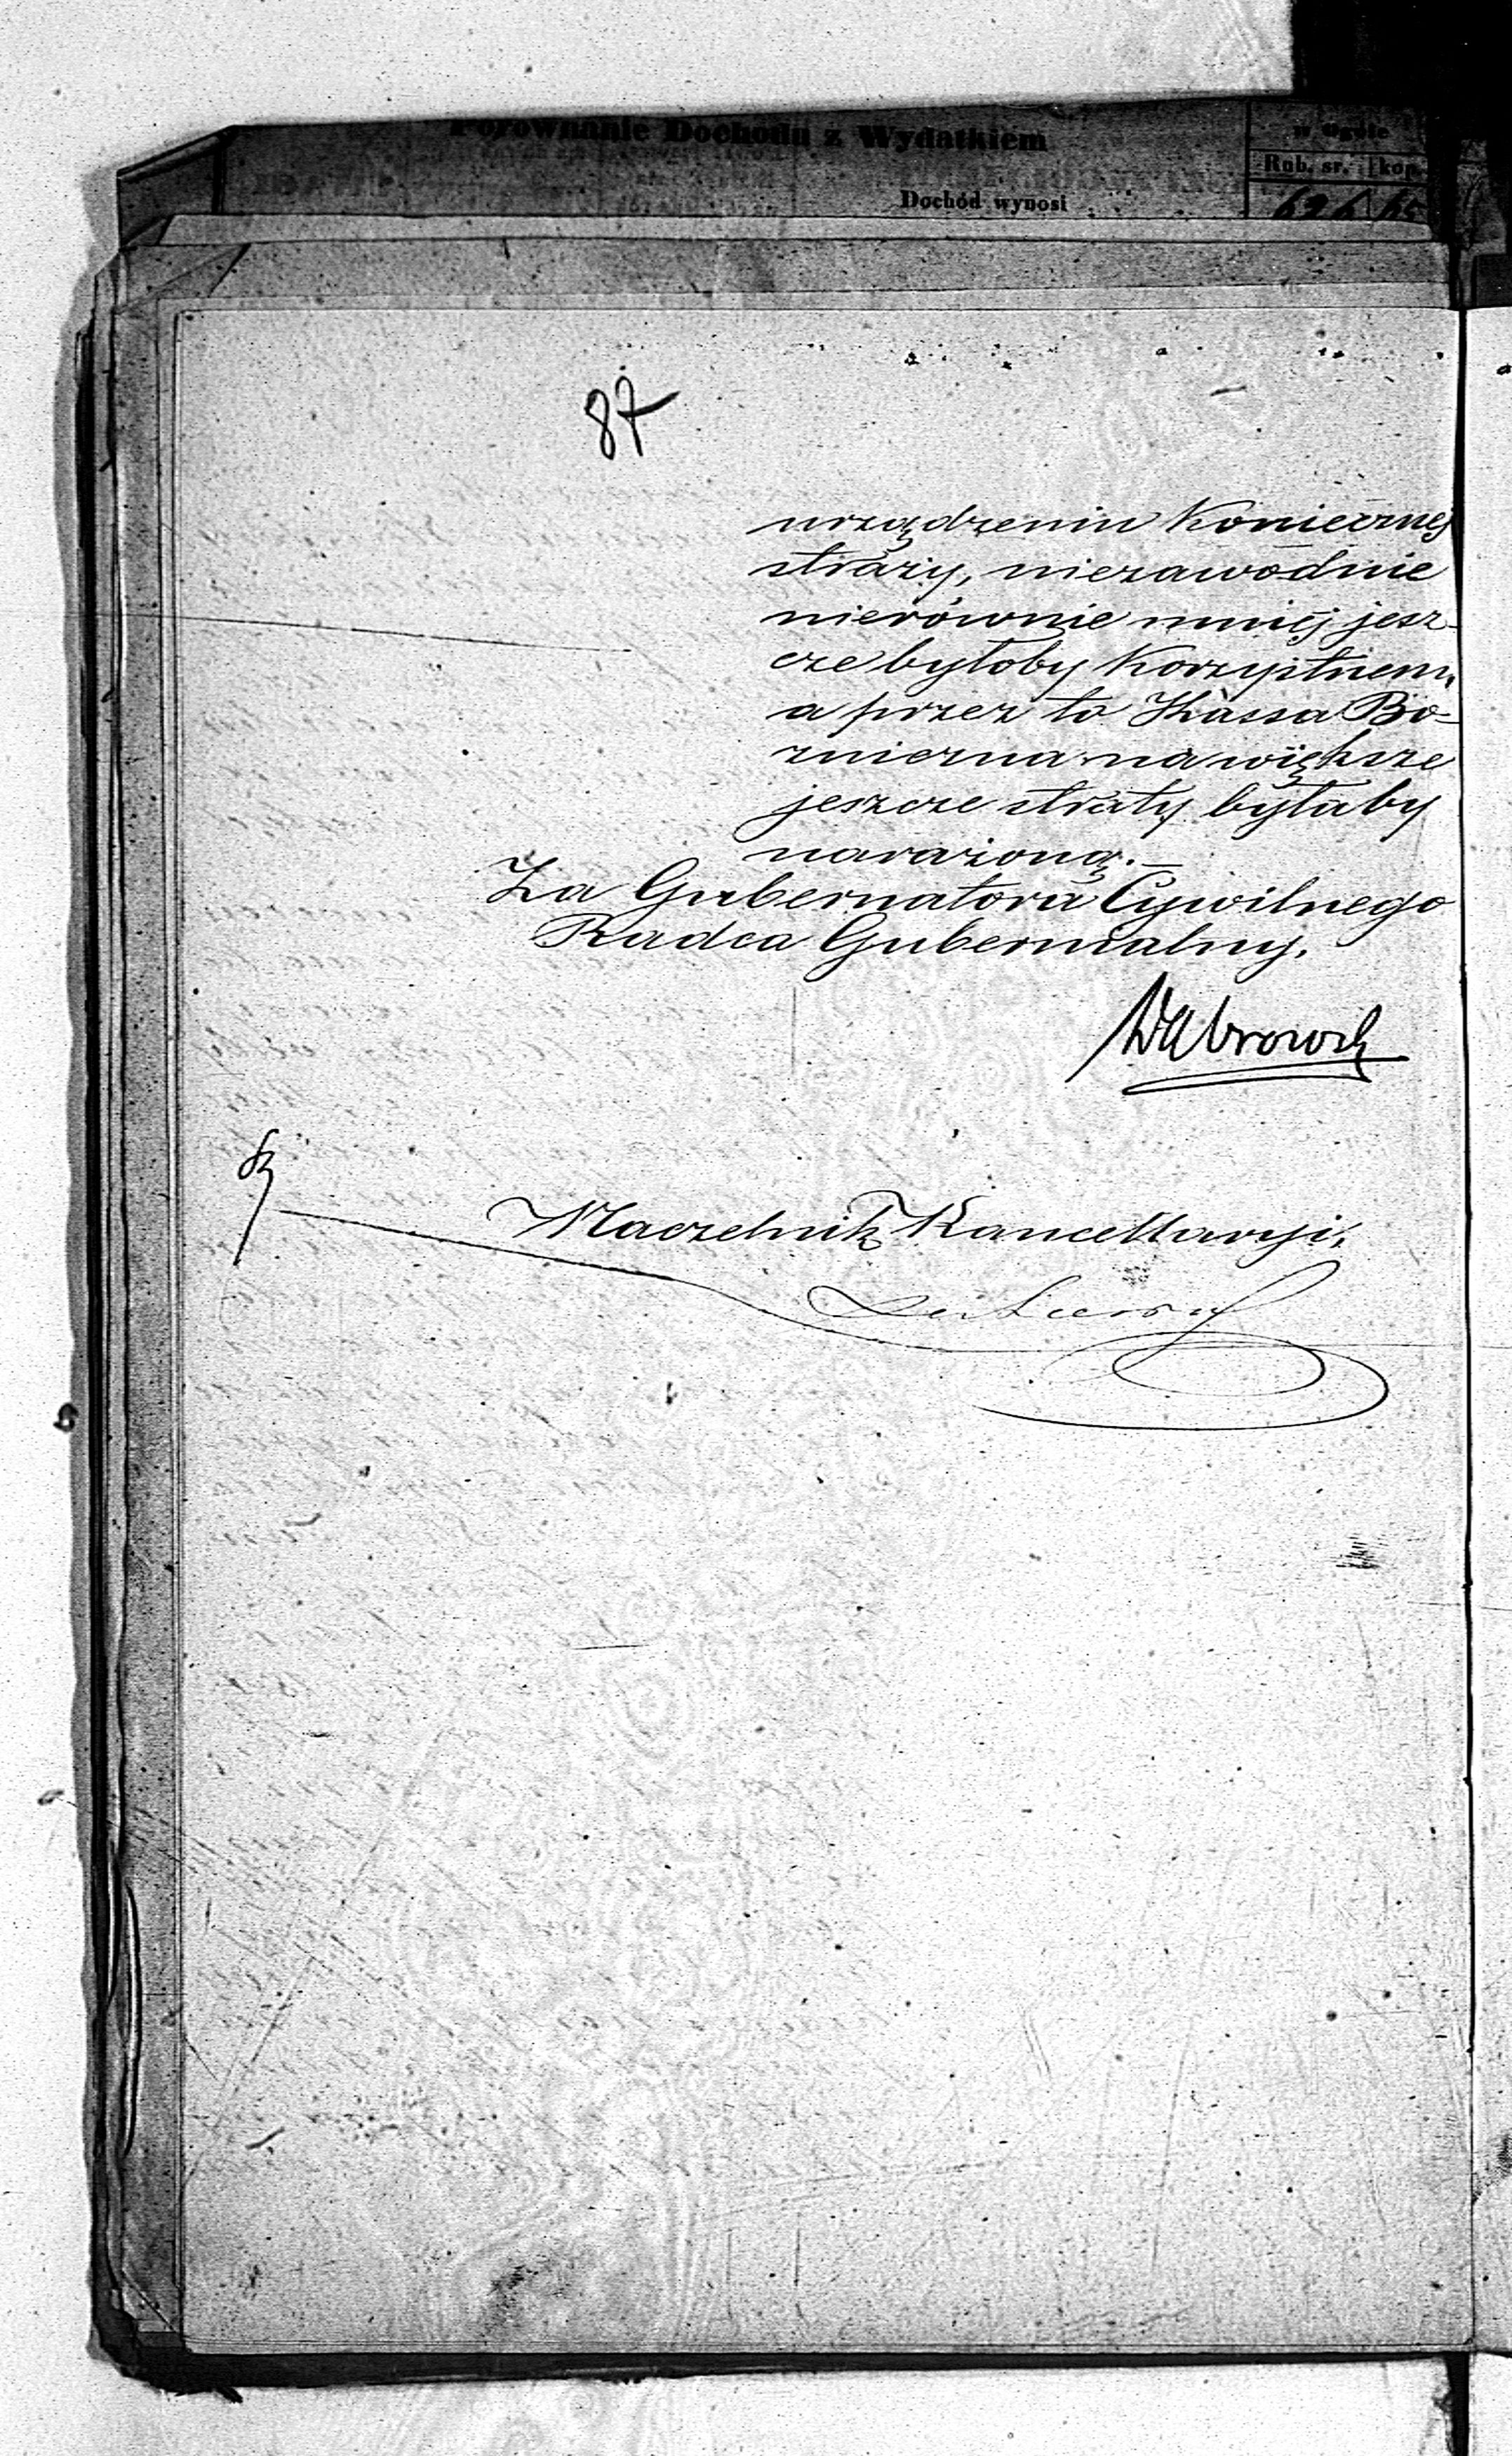 Porównanie Dochodu z Wydatkiem
w ogóle
Rub. sr. kop.
Dochód wynosi
696 65
87
urządzeniu Koniecznej
straży, niezawodnie
nierównie mniéj jesz-
cze byłoby Korzystnem,
a przez to Kassa Bó-
żniczna na większe
jeszcze straty byłaby
narażoną.—
Za Gubernatora Cywilnego
Radca Gubernialny,
Naczelnik Kancellaryi,